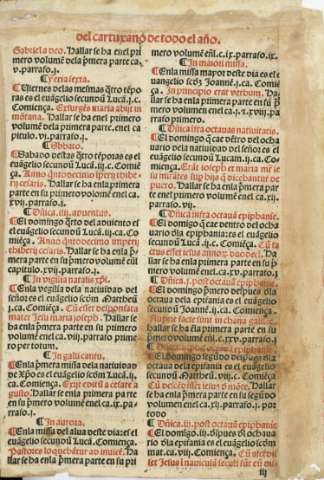 del cartuxano de todo el año.
Gabriela deo. Hallar se ha enel pri
mero volumē dela p̄mera parte ca.
v. parrafo.j.
¶ Feria sexta.
¶ Viernes delas mesmas q̄tro tēpo
ras es el euāgelio secundū Lucā.j.c.
Comiēça. Exurgēs maria abijt in
mōtana. Hallar se ha enla primero
volumē dela primera parte.enel ca
pitulo .vj. parrafo.j.
¶ Sabbato.
¶ Sabado destas q̄tro tēporas es el
euāgelio secūdū Lucā.iij.c. Comiē
ça. Anno q̄ntodecimo imperij thibe
rij cesaris. Hallar se ha enla p̄mera
parte en su primero volumē enel ca.
xvij. parrafo.j.
¶ Dñica .iiij. aduentus.
¶ El domingo q̄rto del aduiento es
el euāgelio secundū Lucā.iij.ca. Co
miēça. Anno quītodecimo imperij
thiberij cesaris. Hallar se ha enla p̄
mera parte en su p̄mero volumē enel
capitulo .xvij. parrafo.j.
¶ In vigilia natalis xp̄i.
¶ Enla vigilia dela natiuidad del
señor es el euāgelio scōm Mattheū
.j.ca. Comiença. Cū esset desponsata
mater Jesu maria joseph. Hallar se
ha enla primera parte en su primero
volumē enel ca. viij. parrafo prime
ro per totum.
¶ In galli cantu.
¶ Enla p̄mera missa dela natiuidad
de Xp̄o es el euāgelio scōm Lucā.ij.
ca. Comiença. Exijt edictū a cesare a
gusto. Hallar se ha enla primera par
te en su primero volumē enel ca.ix. pa
rrafo.j.
¶ In aurora.
¶ Enla missa del alua deste dia: es el
euāgelio secundū Lucā. Comiēça.
Pastores loquebātur ad inuicē. Ha
llar se ha enla primera parte en su pri
mero volumē enl.c.ix.parrafo.ix.
¶ In maiori missa.
¶ Enla missa mayor deste dia es el e
uangelio scōm Joannē.j.ca. Comiē
ça. In principio erat verbum. Ha
llar se ha enla primera parte en su p̄
mero volumē enel ca.j. z.xvij. pa
rrafo primero.
¶ Dñica ifra octauas natiuitatis.
¶ El domingo q̄ cae dētro del ocha
uario dela natiuidad del señor es el
euāgelio secundū Lucam.ij.ca. Co
miēça. Erāt ioseph et maria mr̄ ie
su mirātes sup his q̄ dicebātur de
puero. Hallar se ha enla p̄mera par
te enel primero volumē enel ca. xij.
parrafo.j.
¶ Dñica infra octauā epiphanie.
¶ El domingo q̄ cae dentro del ocha
uario dla epiphania: es el euāgelio
secundū Lucā.ij.c. Comiença. Cū fa
ctus esset iesus annoꝝ duodeci.
Hallar se ha enla primera parte en su
primero volumē enel.ca.xv.parrafo.j.
¶ Dñica .j. post octauā epiphanie.
¶ El domingo p̄mero despues dla
octaua dela epifania es el euāgelio
secūdū Joannē.ij.ca. Comiença.
Nuptie facte sunt in chana galilee.
hallar se ha enla primera parte en su
p̄mero volumē enel.ca.xxv.parrafo.j.
¶ El domingo segūdo despues dla
octaua dela epifania es el euāgelio
secundū Mattheū. viij.c. Comiença.
Hallar
se ha enla primera parte en su segūdo
volumē enel ca.
todo
¶ Dñica .iij. post octauā epiphanie.